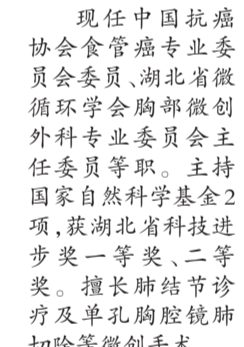 现任中国抗癌
协会食管癌专业委
员会委员、湖北省微
循环学会胸部微创
外科专业委员会主
任委员等职。主持
国家自然科学基金2
项，获湖北省科技进
步奖一等奖、二等
奖。擅长肺结节诊
疗及单孔胸腔镜肺
切除等微创手术